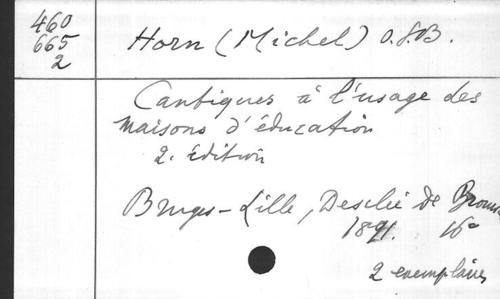 460
665
2
Horn (Michel) O.S.B.
Cantiques à l'usage des
maisons d'éducation
2. édition
Bruges-Lille, Desclée de Brouw
1891. 16°
2 exemplaires